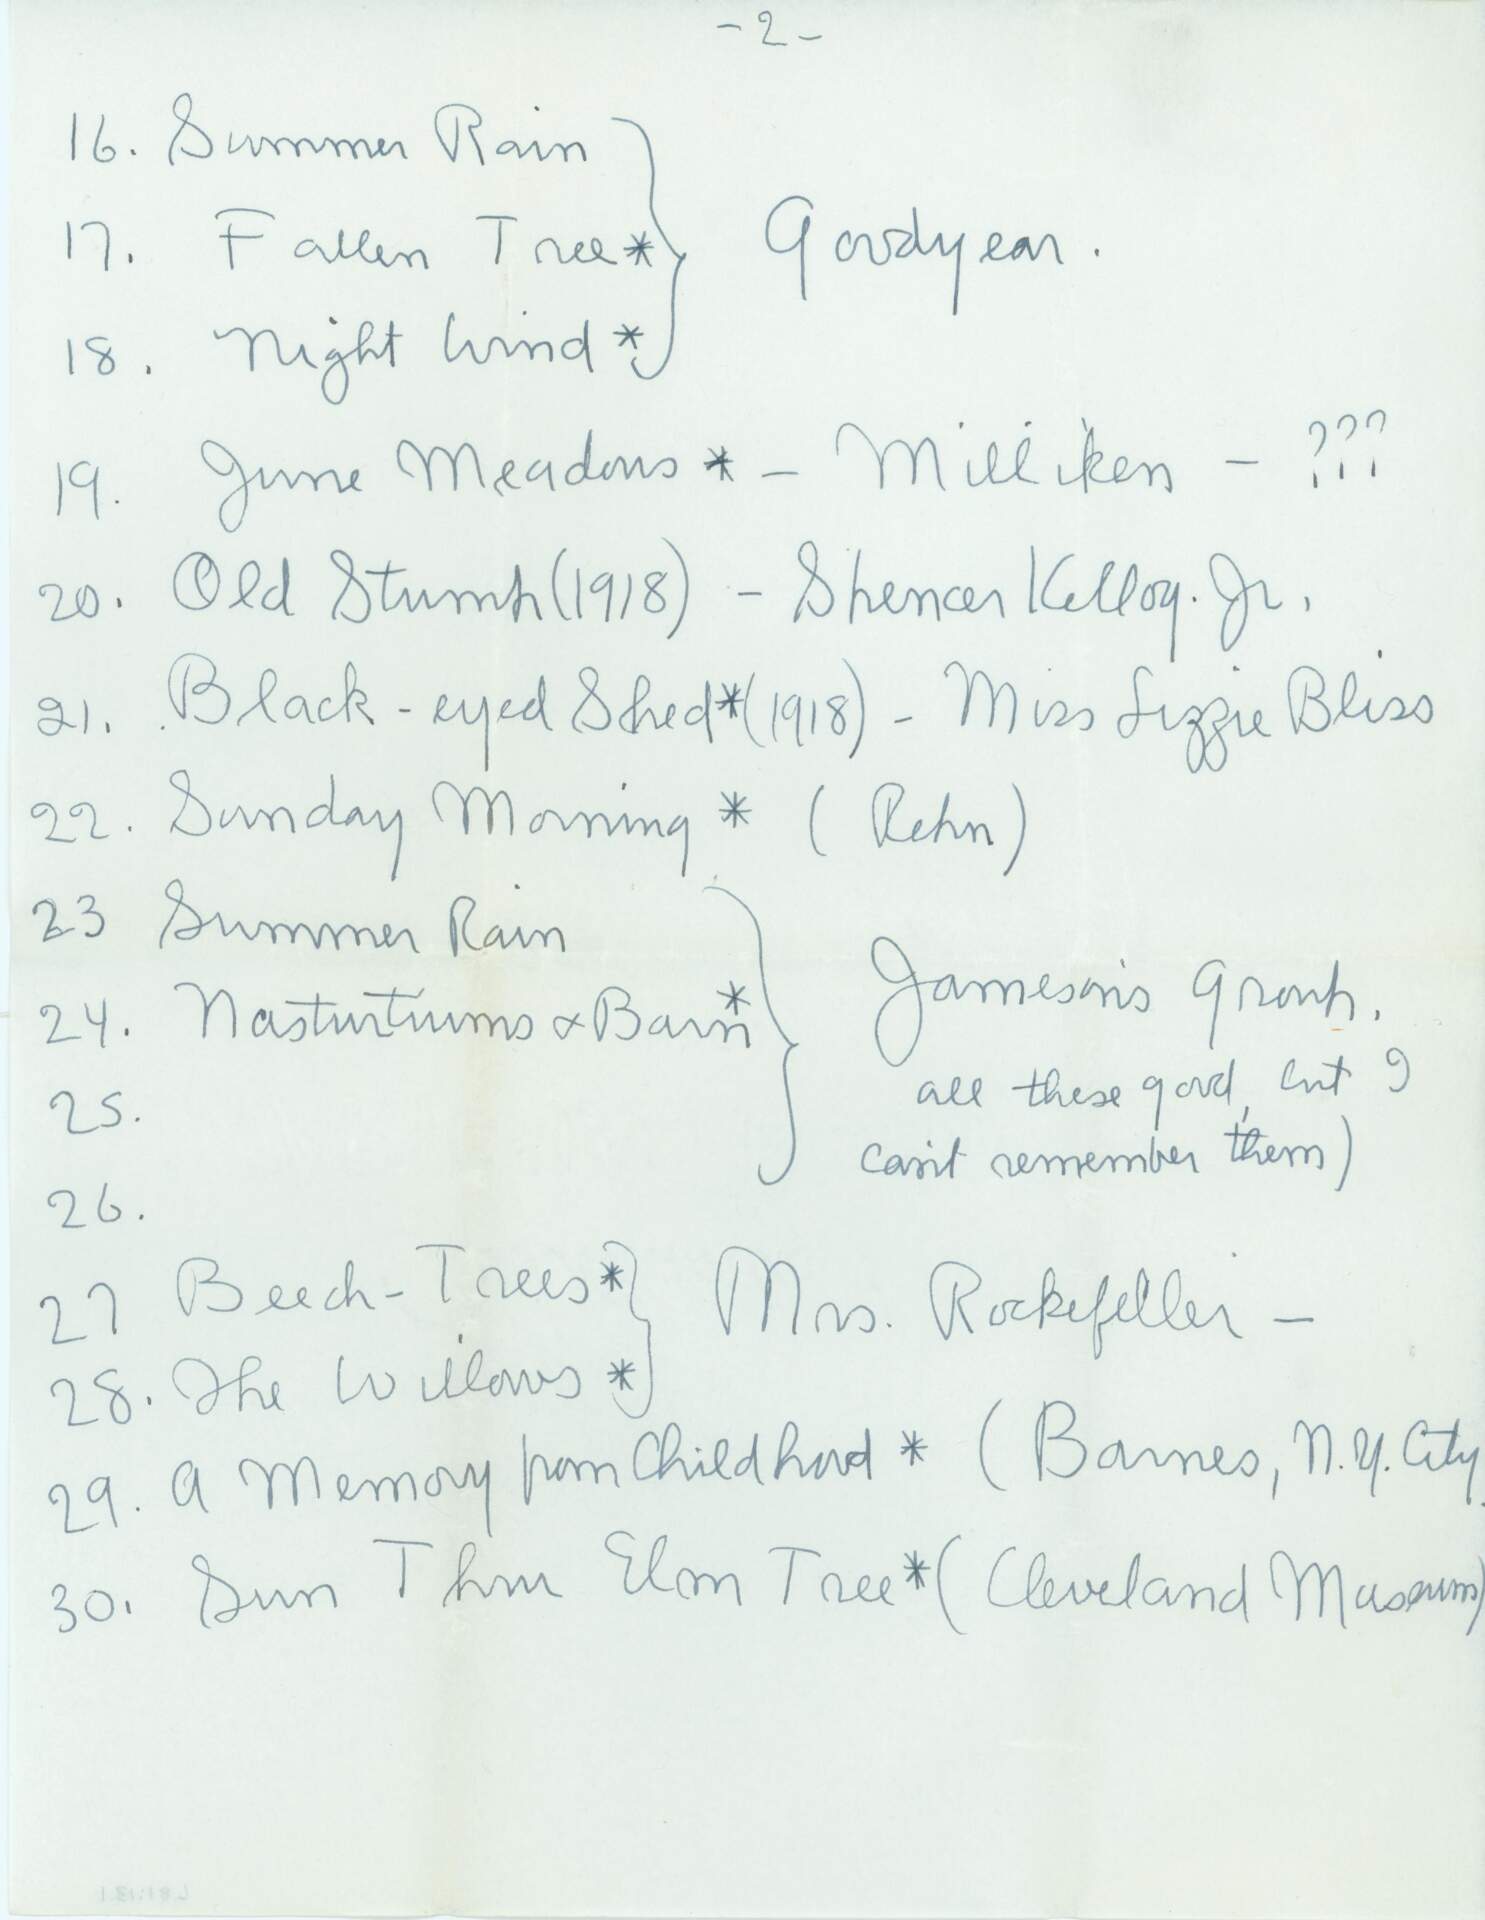 -2-
16. Summer Rain
17. Fallen Tree* } Goodyear.
18. Night Wind*
19. June Meadows * - Milliken - ???
20. Old Stump (1918) - Spencer Kellog. Jr.
21. Black-eyed Shed* (1918) - Miss Lizzie Bliss
22. Sunday Morning * (Rehn)
23 Summer Rain
24. Nasturtiums & Barn* } Jameson's group.
25. all these good, but I
can't remember them)
26.
27 Beech-Trees* } Mrs. Rockefeller -
28. The Willows *
29. A Memory from Childhood * (Barnes, N.Y. City.
30. Sun Thru Elm Tree* (Cleveland Museum)